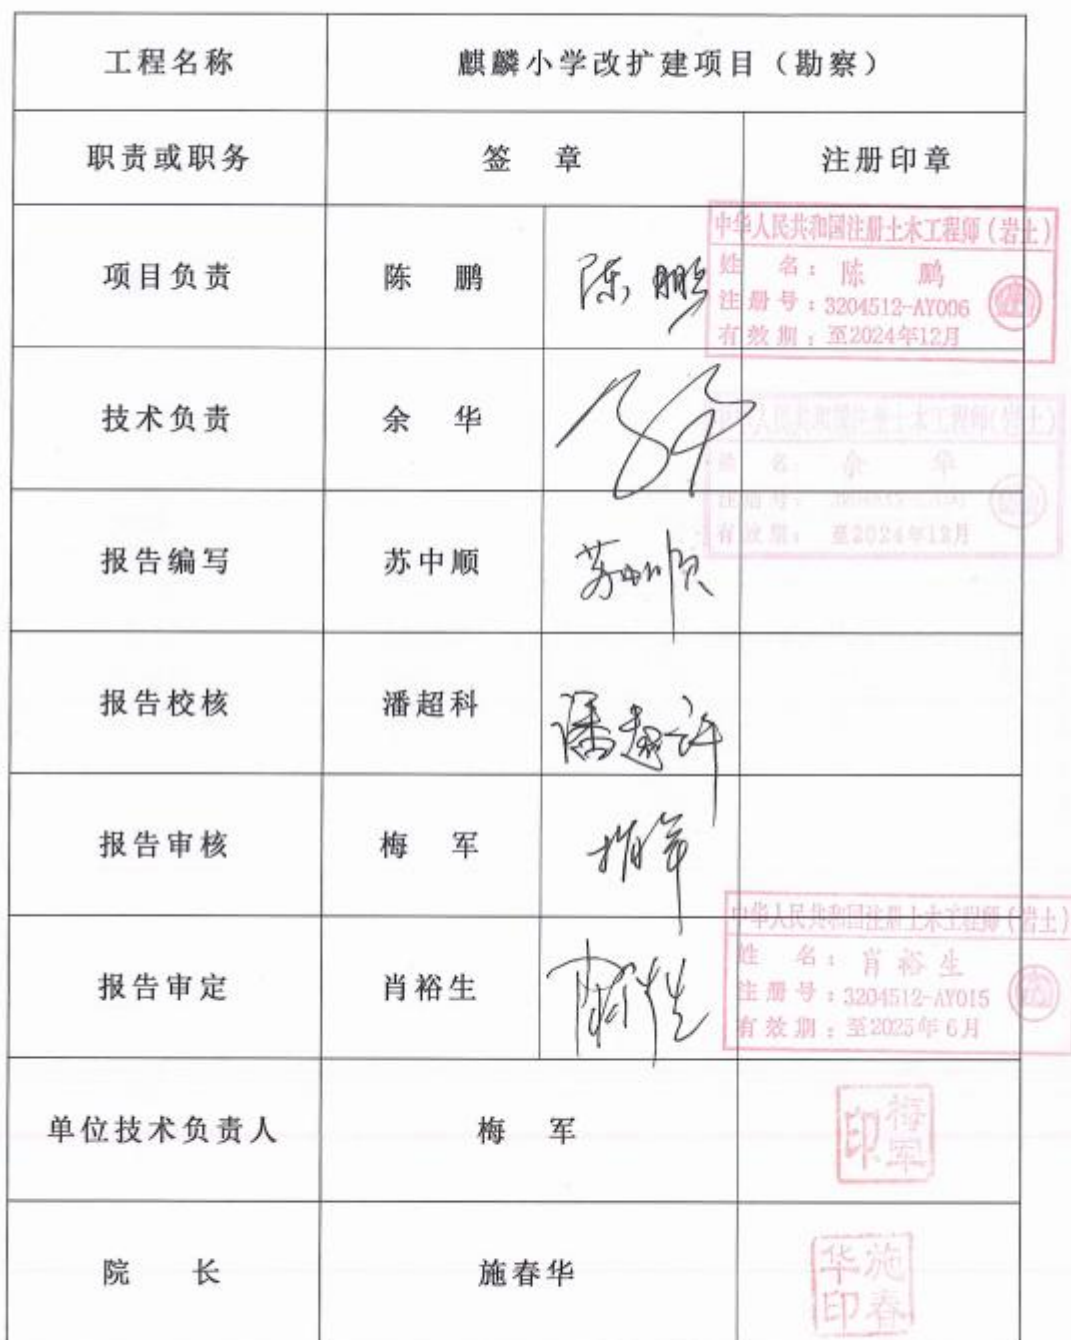 工程名称 麒麟小学改扩建项目（勘察）
职责或职务 签 章 注册印章
项目负责 陈 鹏 陈鹏
中华人民共和国注册土木工程师（岩土）
姓 名：陈 鹏
注册号：3204512-AY006
有效期：至2024年12月
技术负责 余 华
中华人民共和国注册土木工程师(岩土)
姓 名：余 华
注册号：
有效期：至2024年12月
报告编写 苏中顺 苏中顺
报告校核 潘超科 潘超科
报告审核 梅 军 梅军
报告审定 肖裕生 肖裕生
中华人民共和国注册土木工程师（岩土）
姓 名：肖裕生
注册号：3204512-AY015
有效期：至2025年6月
单位技术负责人 梅 军 梅军印
院 长 施春华 施春华印